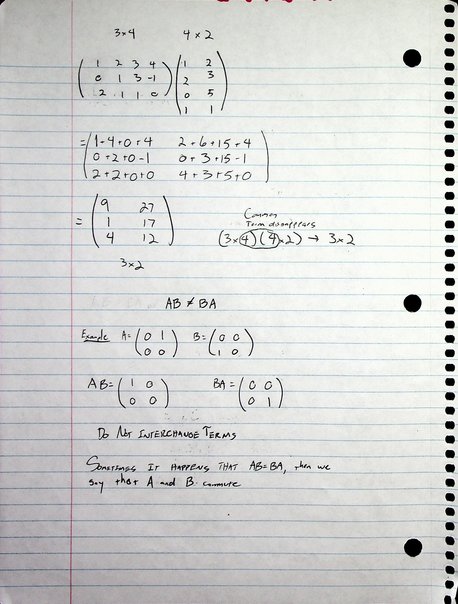 3×4 4×2
(1 2 3 4) (1 2)
(0 1 3 -1) (2 3)
(2 1 1 0) (0 5)
(1 1)
=(1+4+0+4 2+6+15+4)
(0+2+0-1 0+3+15-1)
(2+2+0+0 4+3+5+0)
=(9 27)
(1 17)
(4 12)
3×2
Common
Term disappears
(3×4)(4×2) → 3×2
AB ≠ BA
Example A=(0 1) B=(0 0)
(0 0) (1 0)
AB=(1 0) BA=(0 0)
(0 0) (0 1)
DO NOT INTERCHANGE TERMS
SOMETIMES IT HAPPENS THAT AB=BA, then we
say that A and B commute